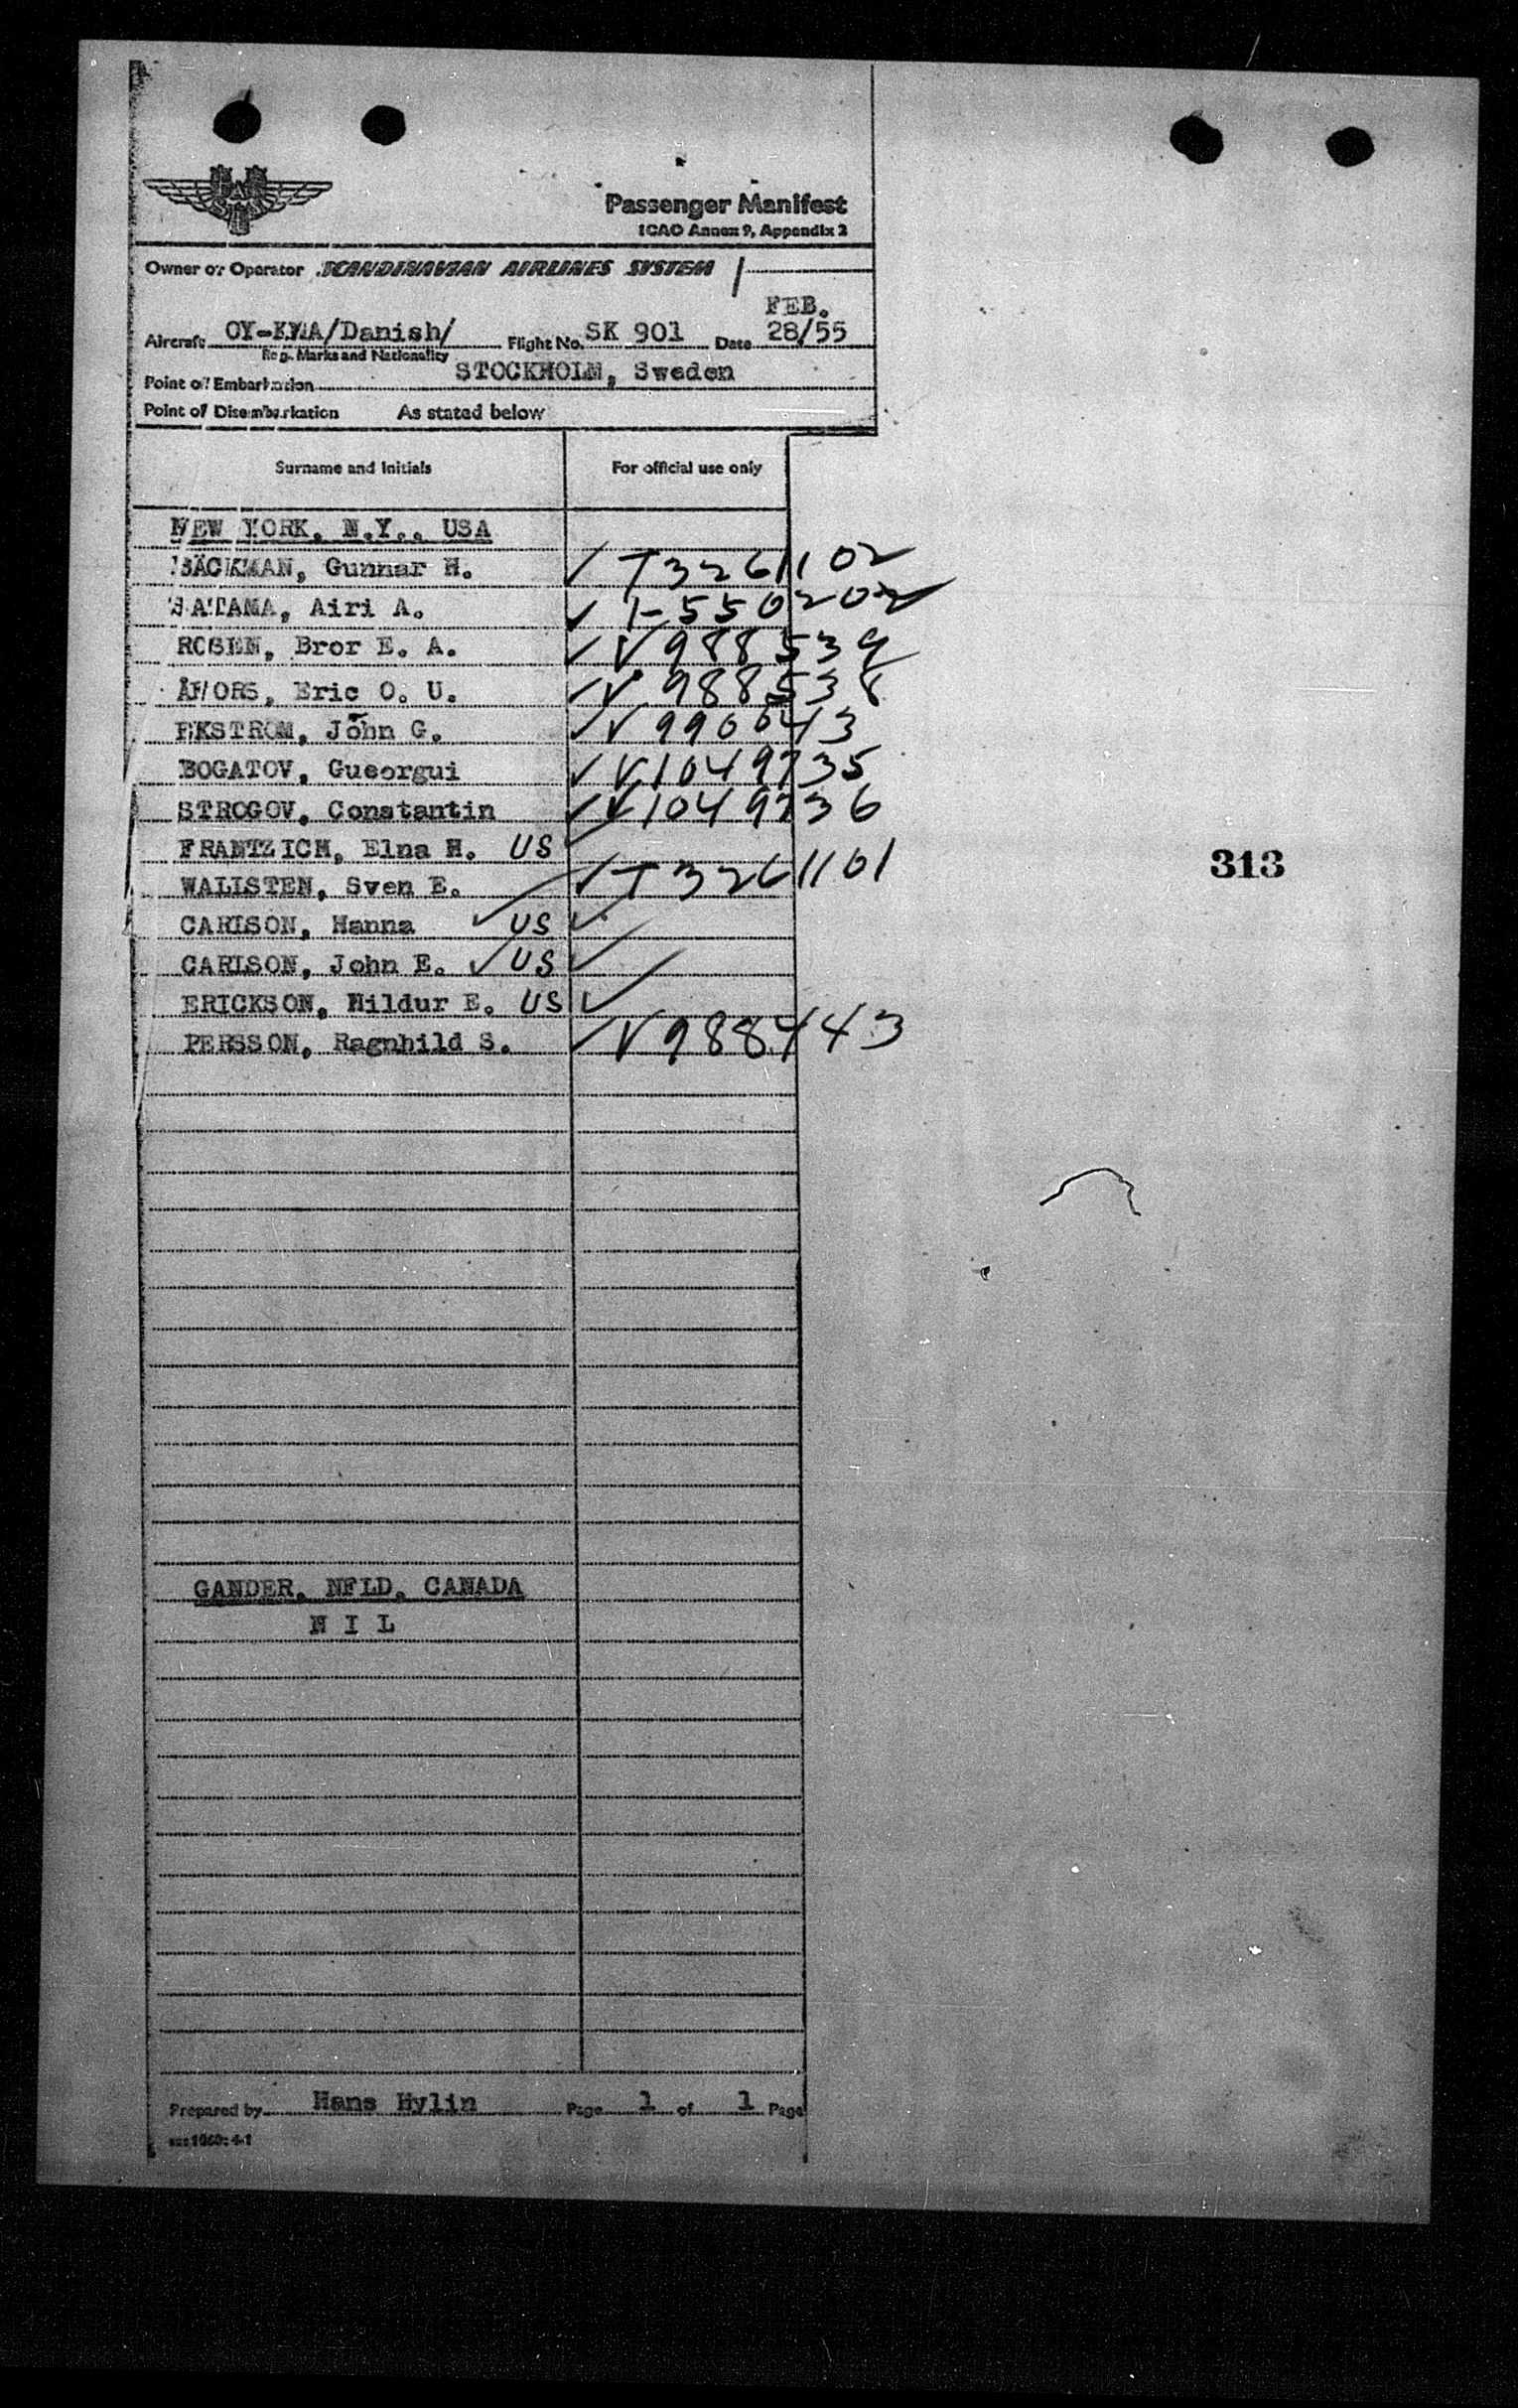 SAS
Passenger Manifest
ICAO Annex 9, Appendix 2
Owner or Operator SCANDINAVIAN AIRLINES SYSTEM
FEB.
Aircraft OY-KMA/Danish/ Flight No. SK 901 Date 28/55
Reg. Marks and Nationality
Point of Embarkation STOCKHOLM, Sweden
Point of Disembarkation As stated below
Surname and Initials For official use only
NEW YORK, N.Y., USA
BÄCKMAN, Gunnar H. ✓ T3261102
SATAMA, Airi A. ✓ T-550202
ROSEN, Bror E. A. ✓ V988539
Eric O. U. ✓ V988538
EKSTROM, John G. ✓ V990043
BOGATOV, Gueorgui ✓ V1049735
STROGOV, Constantin ✓ V1049736
FRANTZICH, Elna H. US ✓
WALISTEN, Sven E. ✓ T3261101
CARLSON, Hanna ✓ US ✓
CARLSON, John E. ✓ US ✓
ERICKSON, Hildur E. US ✓
PERSSON, Ragnhild S. ✓ V988443
313
GANDER, NFLD, CANADA
N I L
Prepared by Hans Hylin Page 1 of 1 Page